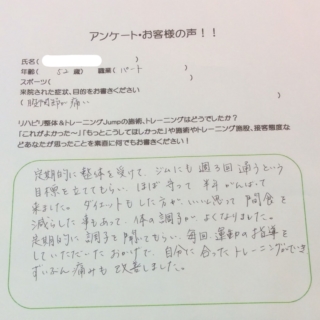 アンケート・お客様の声！！
氏名(
年齢( 52 歳) 職業( パート
スポーツ(
来院された症状、目的をお書きください
( 股関節が痛い
リハビリ整体＆トレーニングJumpの施術、トレーニングはどうでしたか？
「これがよかったー」「もっとこうしてほしかった」や施術やトレーニング施設、接客態度な
どあなたが思ったことを素直に何でもお書きください！
定期的に整体を受けて、ジムにも週3回通うという
目標を立ててもらい、ほぼ守って半年がんばって
来ました。ダイエットもした方がいいと思って間食を
減らした事もあって、体の調子がよくなりました。
定期的に調子を聞いてもらい、毎回運動の指導を
していただいたおかげで、自分に合ったトレーニングができ
ずいぶん痛みも改善しました。